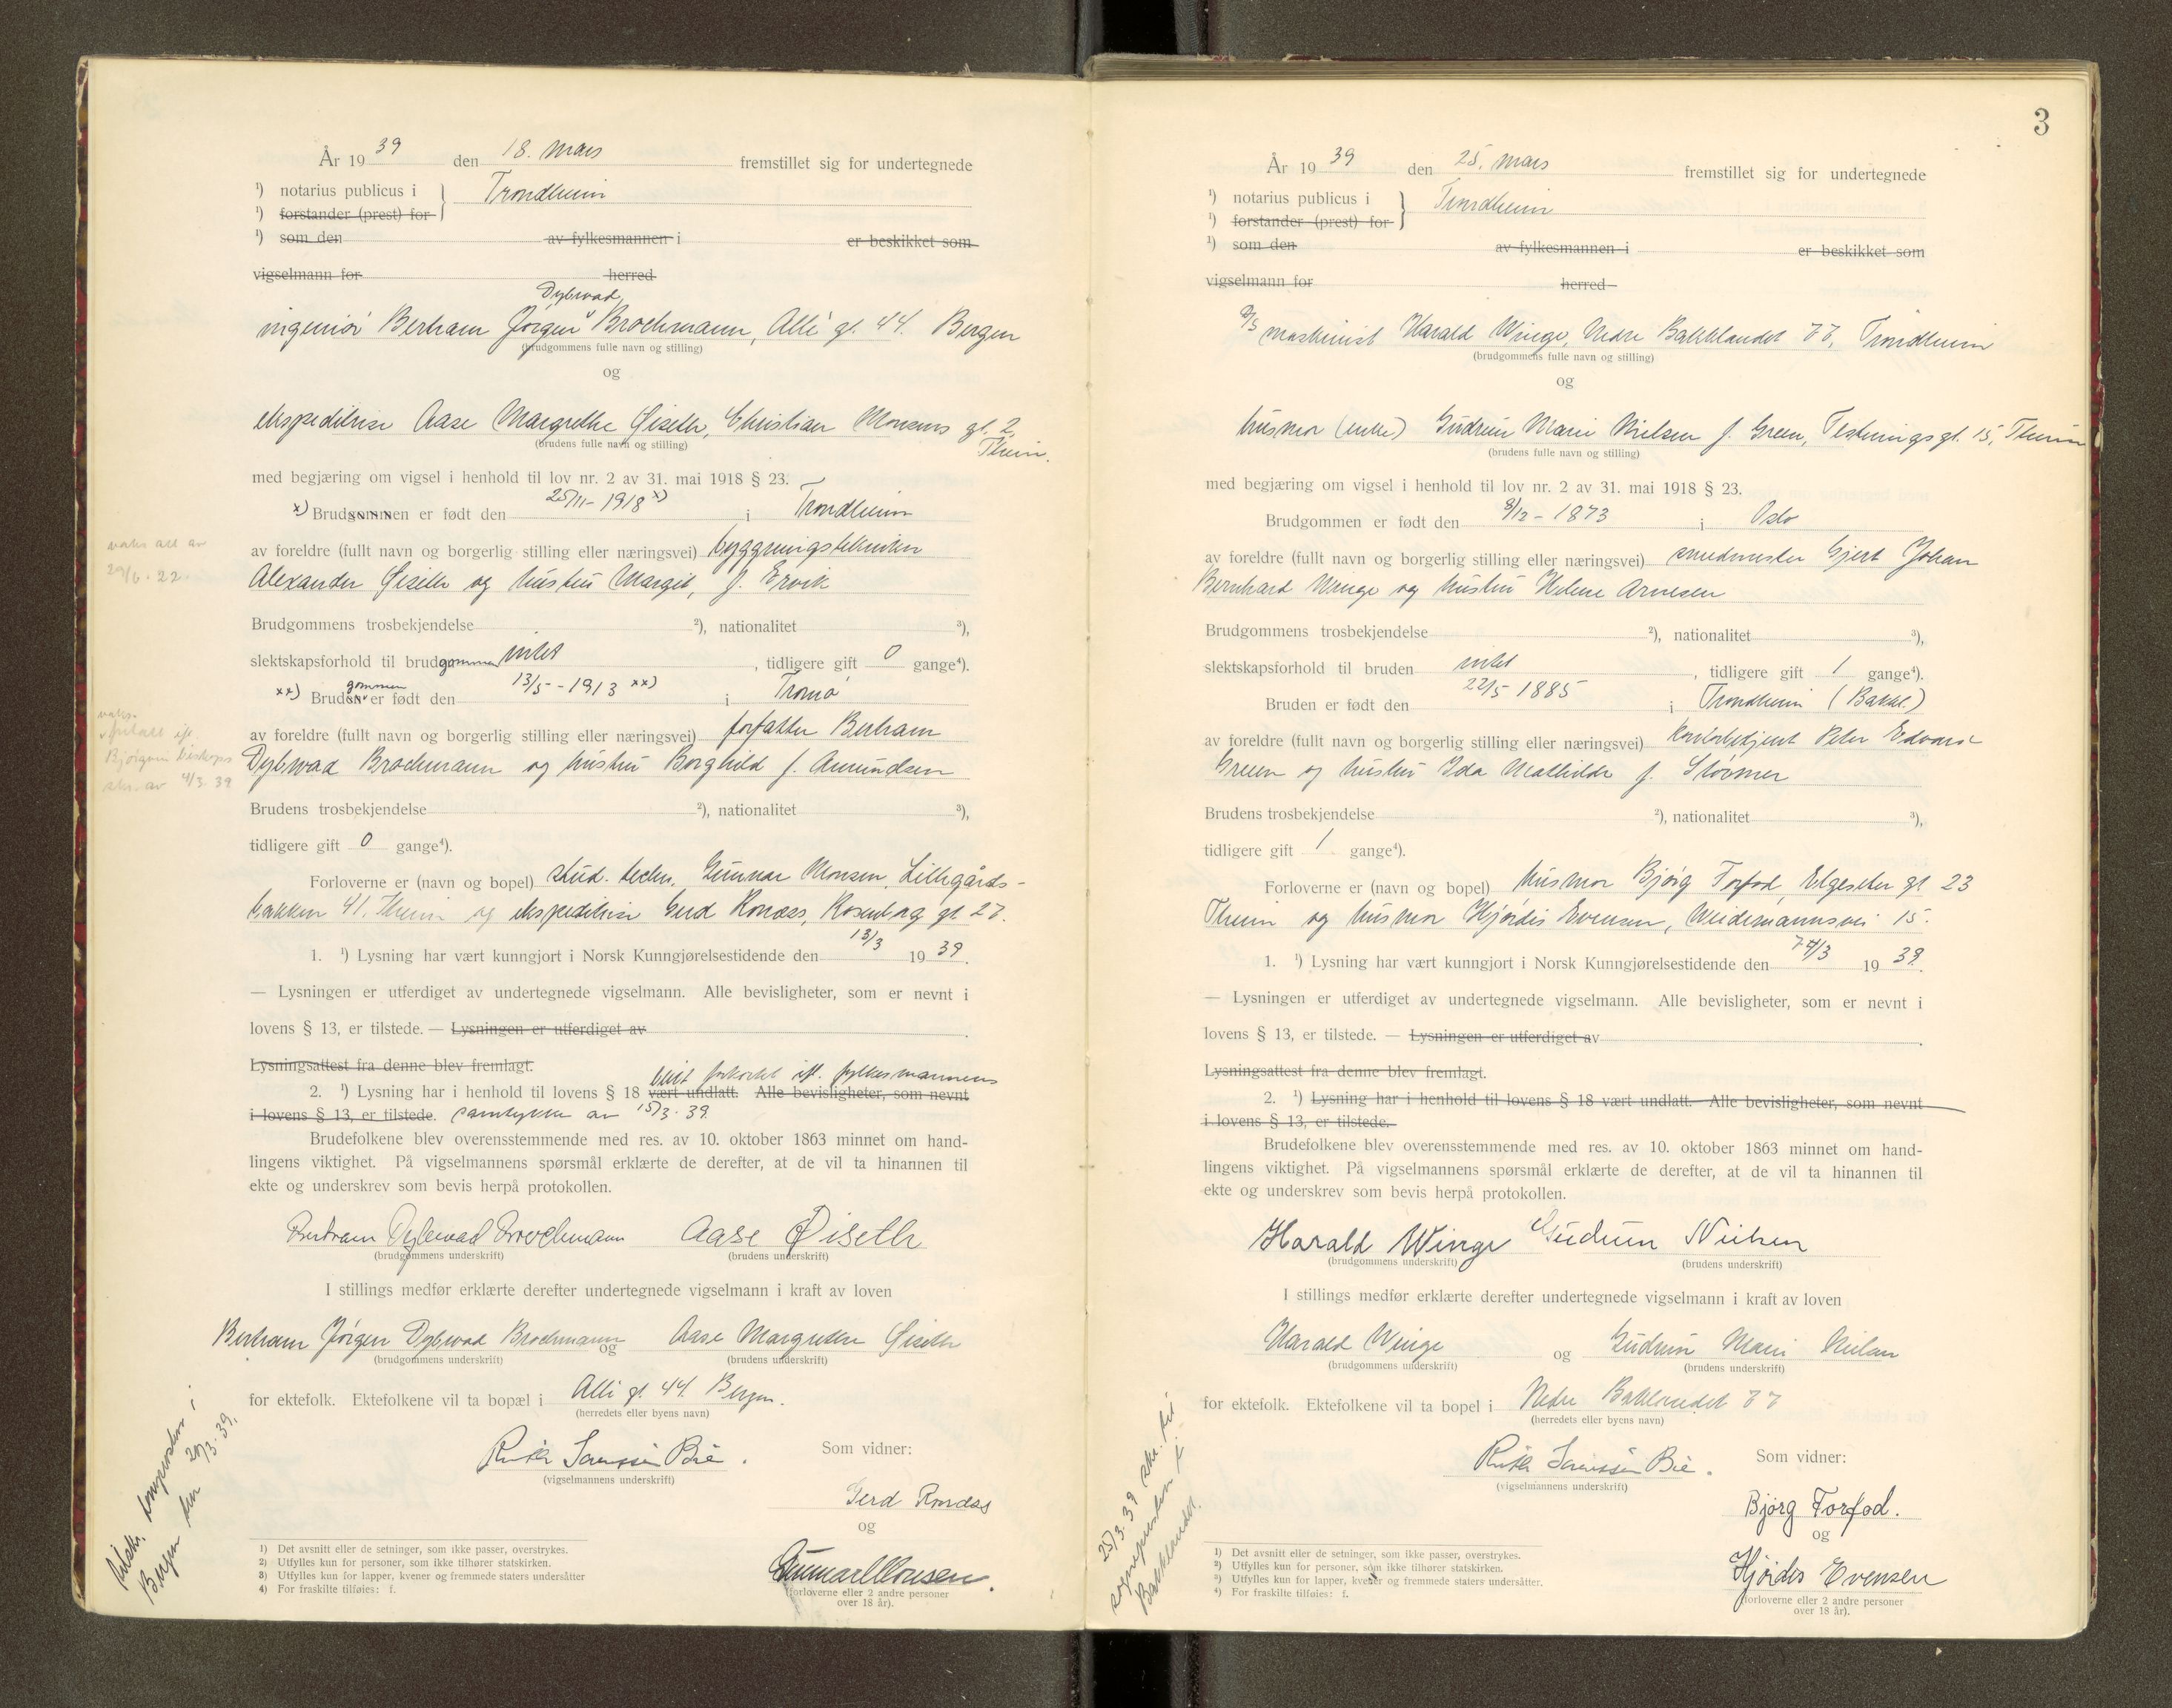 År 19 39 den 18. mars fremstillet sig for undertegnede
¹) notarius publicus i } Trondheim
¹) forstander (prest) for
¹) som den av fylkesmannen i er beskikket som
vigselmann for herred
Dybwad
ingeniør Bertram Jørgen v Brochmann, Allé gt. 44. Bergen
(brudgommens fulle navn og stilling)
og
ekspeditrise Aase Margrethe Øiseth, Christian Monsens gt. 2,
(brudens fulle navn og stilling)
Theim.
med begjæring om vigsel i henhold til lov nr. 2 av 31. mai 1918 § 23.
x) Brudgommen er født den 25/11-1918 x) i Trondheim
vaks att av
29/6.22.
av foreldre (fullt navn og borgerlig stilling eller næringsvei) byggningstekniker
Alexander Øiseth og hustru Margit, f. Ervik
Brudgommens trosbekjendelse ²), nationalitet ³),
slektskapsforhold til brudgommen intet, tidligere gift 0 gange⁴).
xx) Brudgommen er født den 13/5-1913 xx) i Tromø
vaks.
fritatt ifl.
Bjørgvin Biskops
skr. av 4/3.39
av foreldre (fullt navn og borgerlig stilling eller næringsvei) forfatter Bertram
Dybwad Brochmann og hustru Borghild f. Amundsen
Brudens trosbekjendelse ²), nationalitet ³),
tidligere gift 0 gange⁴).
Forloverne er (navn og bopel) stud. techn. Gunnar Monsen, Lillegårds-
bakken 41. Theim og ekspeditrise Gerd Rondas, Rosenborg gt. 27.
1. ¹) Lysning har vært kunngjort i Norsk Kunngjørelsestidende den 13/3 19 39.
— Lysningen er utferdiget av undertegnede vigselmann. Alle bevisligheter, som er nevnt i
lovens § 13, er tilstede. — Lysningen er utferdiget av
Lysningsattest fra denne blev fremlagt.
blit forkortet ifl. fylkesmannens
2. ¹) Lysning har i henhold til lovens § 18 vært undlatt. Alle bevisligheter, som nevnt
i lovens § 13, er tilstede. samtykke av 15/3.39.
Brudefolkene blev overensstemmende med res. av 10. oktober 1863 minnet om hand-
lingens viktighet. På vigselmannens spørsmål erklærte de derefter, at de vil ta hinannen til
ekte og underskrev som bevis herpå protokollen.
Bertram Dybwad Brochmann Aase Øiseth
(brudgommens underskrift) (brudens underskrift)
I stillings medfør erklærte derefter undertegnede vigselmann i kraft av loven
Bertram Jørgen Dybwad Brochmann og Aase Margrethe Øiseth
(brudgommens underskrift) (brudens underskrift)
for ektefolk. Ektefolkene vil ta bopæl i Allé gt. 44. Bergen.
(herredets eller byens navn)
Ruth Sørenssen Bie. Som vidner:
(vigselmannens underskrift)
Gerd Rondas
og
Gunnar Monsen.
(forloverne eller 2 andre personer
over 18 år).
Bergen den 20/3.39.
1) Det avsnitt eller de setninger, som ikke passer, overstrykes.
2) Utfylles kun for personer, som ikke tilhører statskirken.
3) Utfylles kun for lapper, kvener og fremmede staters undersåtter
4) For fraskilte tilføies: f.
3
År 19 39 den 25. mars fremstillet sig for undertegnede
¹) notarius publicus i } Trondheim
¹) forstander (prest) for
¹) som den av fylkesmannen i er beskikket som
vigselmann for herred
D/S maskinist Harald Winge, Nedre Bakklandet 77, Trondheim
(brudgommens fulle navn og stilling)
og
husmor (enke) Gudrun Marie Nielsen f. Green, Festningsgt. 15, Theim
(brudens fulle navn og stilling)
med begjæring om vigsel i henhold til lov nr. 2 av 31. mai 1918 § 23.
Brudgommen er født den 8/12-1873 i Oslo
av foreldre (fullt navn og borgerlig stilling eller næringsvei) smedmester Gjert Johan
Bernhard Winge og hustru Helene Arnesen
Brudgommens trosbekjendelse ²), nationalitet ³),
slektskapsforhold til bruden intet, tidligere gift 1 gange⁴).
Bruden er født den 22/5 1885 i Trondheim (Bakkl.)
av foreldre (fullt navn og borgerlig stilling eller næringsvei) kontorbetjent Peter Edvard
Green og hustru Ida Mathilde f. Størmer
Brudens trosbekjendelse ²), nationalitet ³),
tidligere gift 1 gange⁴).
Forloverne er (navn og bopel) husmor Bjørg Torfod, Elgeseter gt 23
Theim og husmor Hjørdis Evensen, Weidemannsvei 15.
1. ¹) Lysning har vært kunngjort i Norsk Kunngjørelsestidende den 19 39.
— Lysningen er utferdiget av undertegnede vigselmann. Alle bevisligheter, som er nevnt i
lovens § 13, er tilstede. — Lysningen er utferdiget av
Lysningsattest fra denne blev fremlagt.
2. ¹) Lysning har i henhold til lovens § 18 vært undlatt. Alle bevisligheter, som nevnt
i lovens § 13, er tilstede.
Brudefolkene blev overensstemmende med res. av 10. oktober 1863 minnet om hand-
lingens viktighet. På vigselmannens spørsmål erklærte de derefter, at de vil ta hinannen til
ekte og underskrev som bevis herpå protokollen.
Harald Winge Gudrun Nielsen
(brudgommens underskrift) (brudens underskrift)
I stillings medfør erklærte derefter undertegnede vigselmann i kraft av loven
Harald Winge og Gudrun Marie Nielsen
(brudgommens underskrift) (brudens underskrift)
for ektefolk. Ektefolkene vil ta bopel i Nedre Baklandet 77
(herredets eller byens navn)
Ruth Sørenssen Bie. Som vidner:
(vigselmannens underskrift)
Bjørg Torfod.
og
Hjørdis Evensen
(forloverne eller 2 andre personer
over 18 år).
25/3.39 skr. til
sognepresten i
Bakklandet.
1) Det avsnitt eller de setninger, som ikke passer, overstrykes.
2) Utfylles kun for personer, som ikke tilhører statskirken.
3) Utfylles kun for lapper, kvener og fremmede staters undersåtter.
4) For fraskilte tilføies: f.